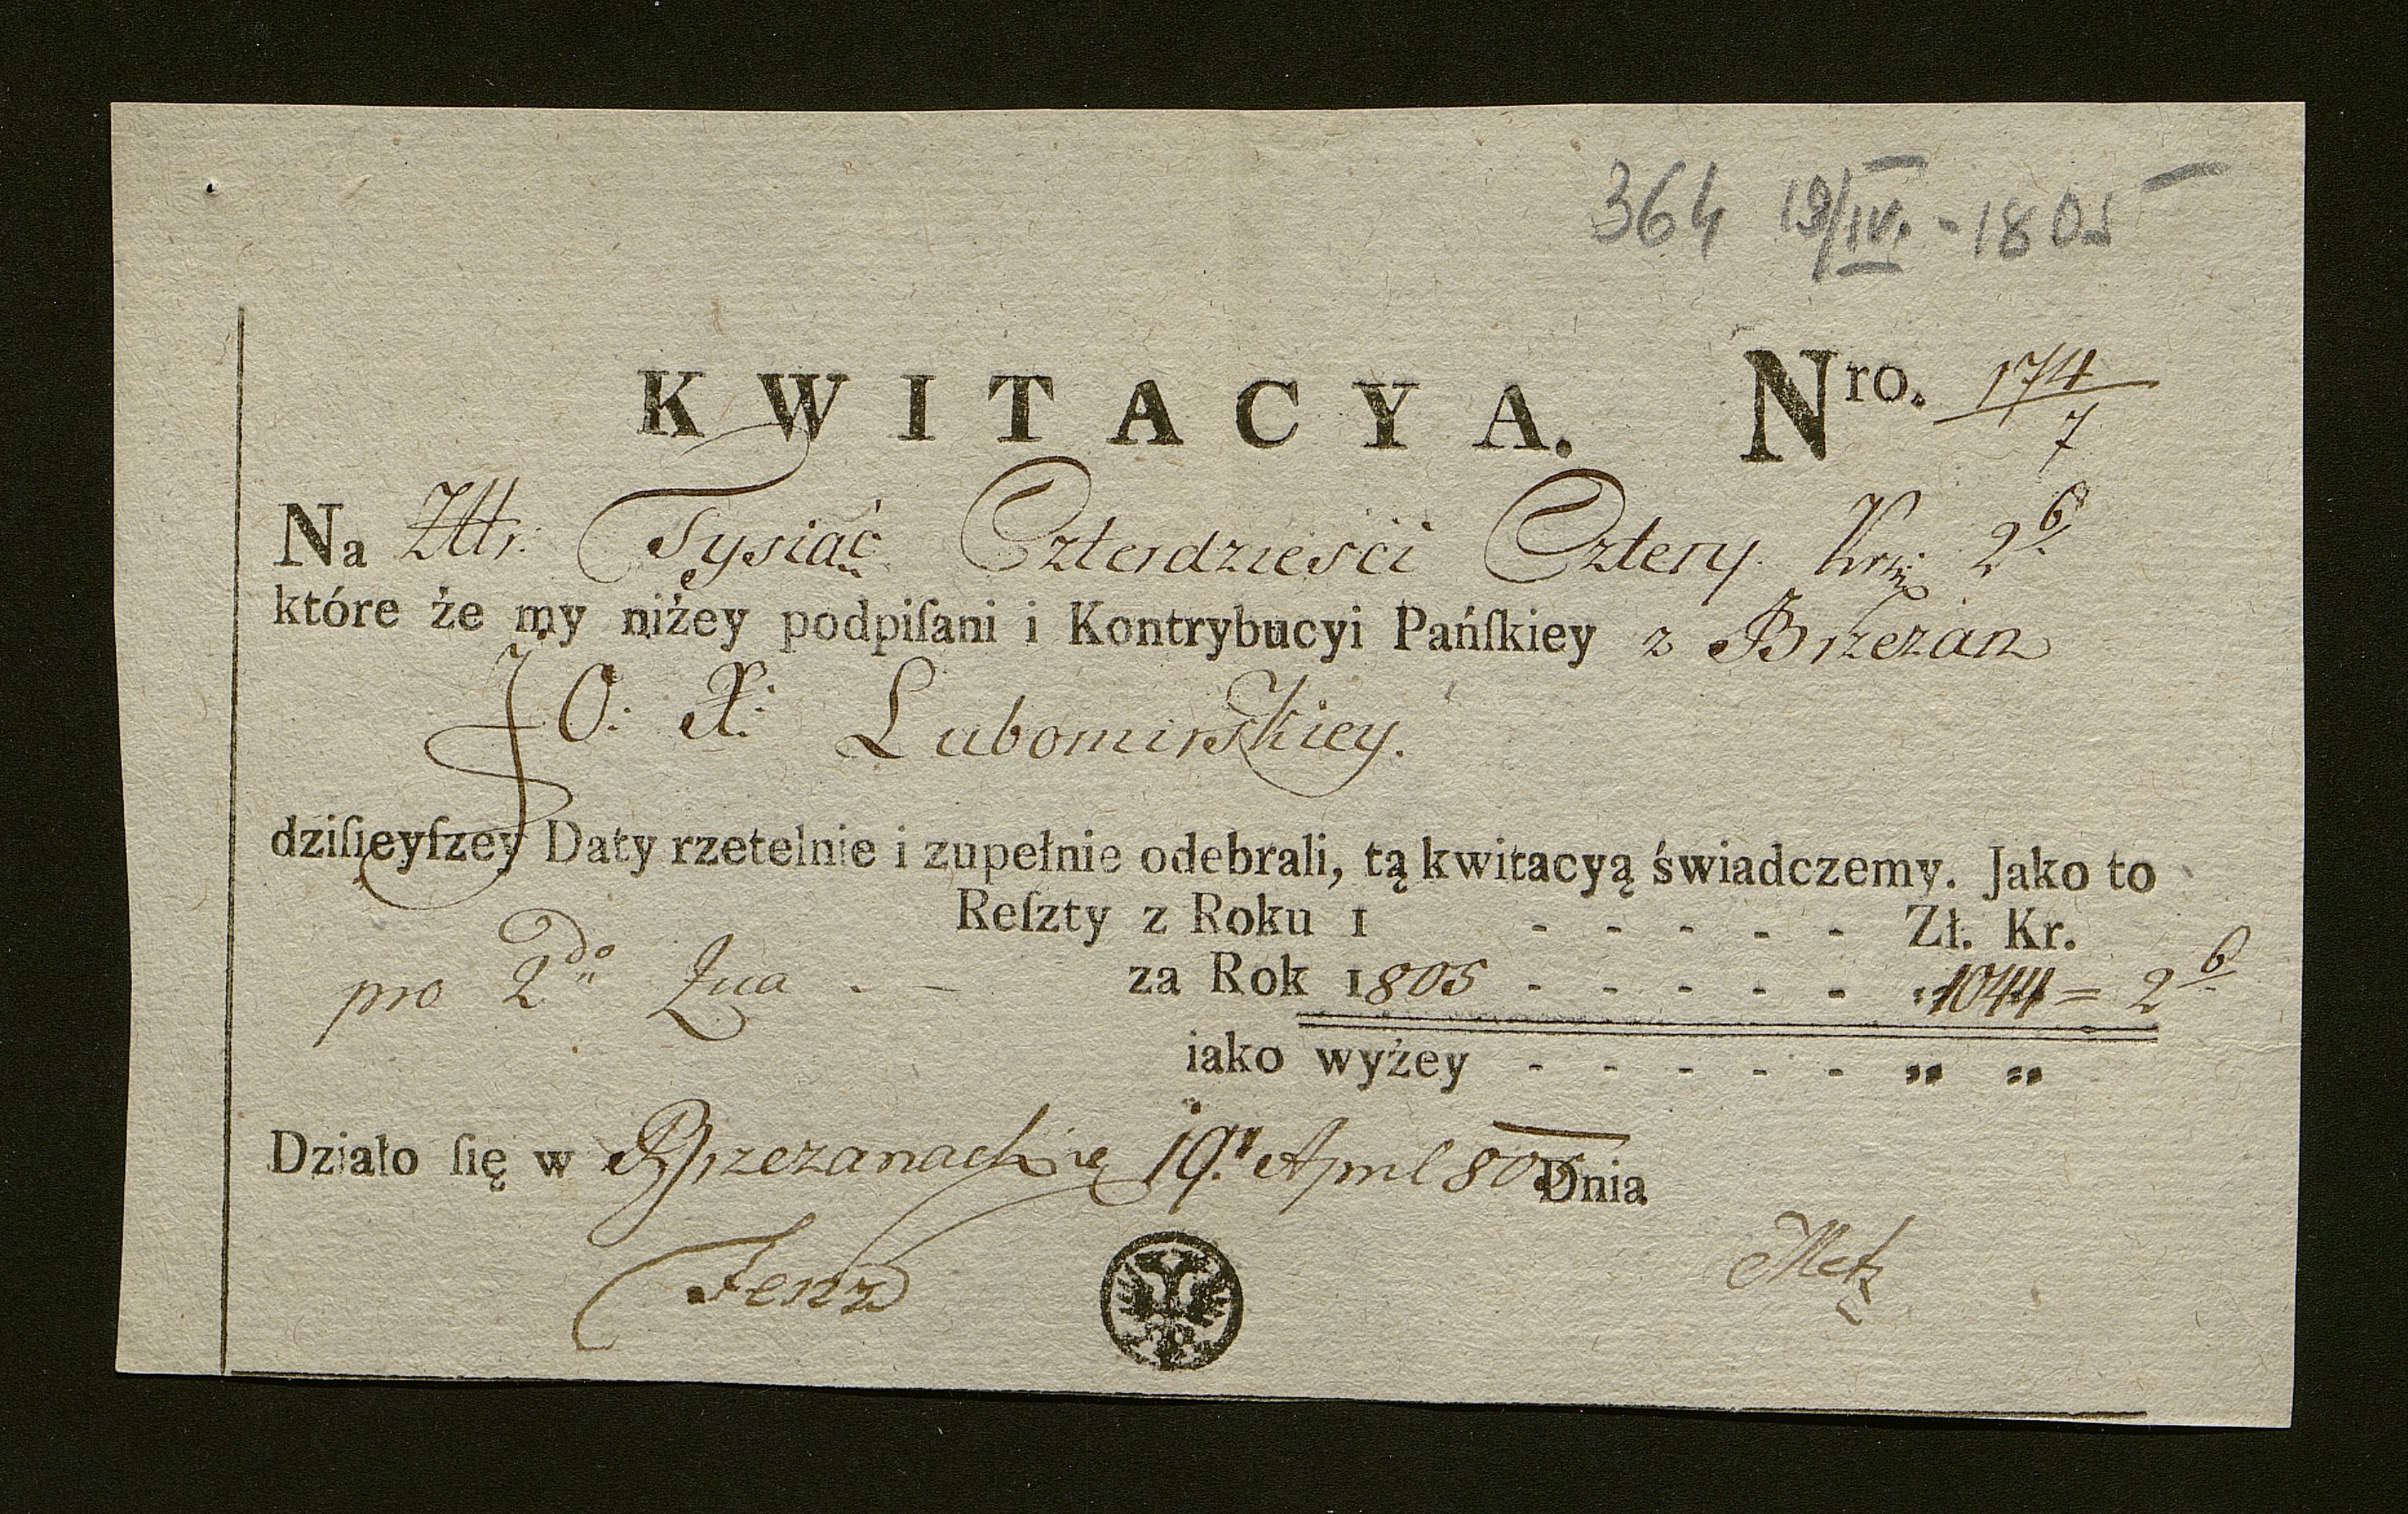 364 19/IV. - 1805
KWITACYA. Nro. 174/7
Na Ztłr: Tysiąć Czterdzieści Cztery. Krz 2 6/
które że my niżey podpiſani i Kontrybucyi Pańſkiey z Brzezan
JO: X: Lubomirskiey.
dziſieyſzey Daty rzetelnie i zupełnie odebrali, tą kwitacyą świadczemy. Jako to
Reſzty z Roku 1 - - - - - Zł. Kr.
pro 2do . - za Rok 1805 - - - - - 1044 = 2 6/
iako wyżey - - - - - „ „
Działo ſię w Brzezanach 19. April 805 Dnia
Metz